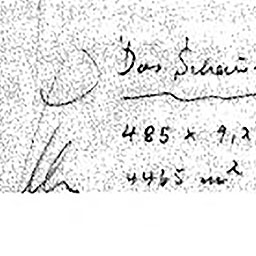 Das Schau
485 x 9,2
4465 m²